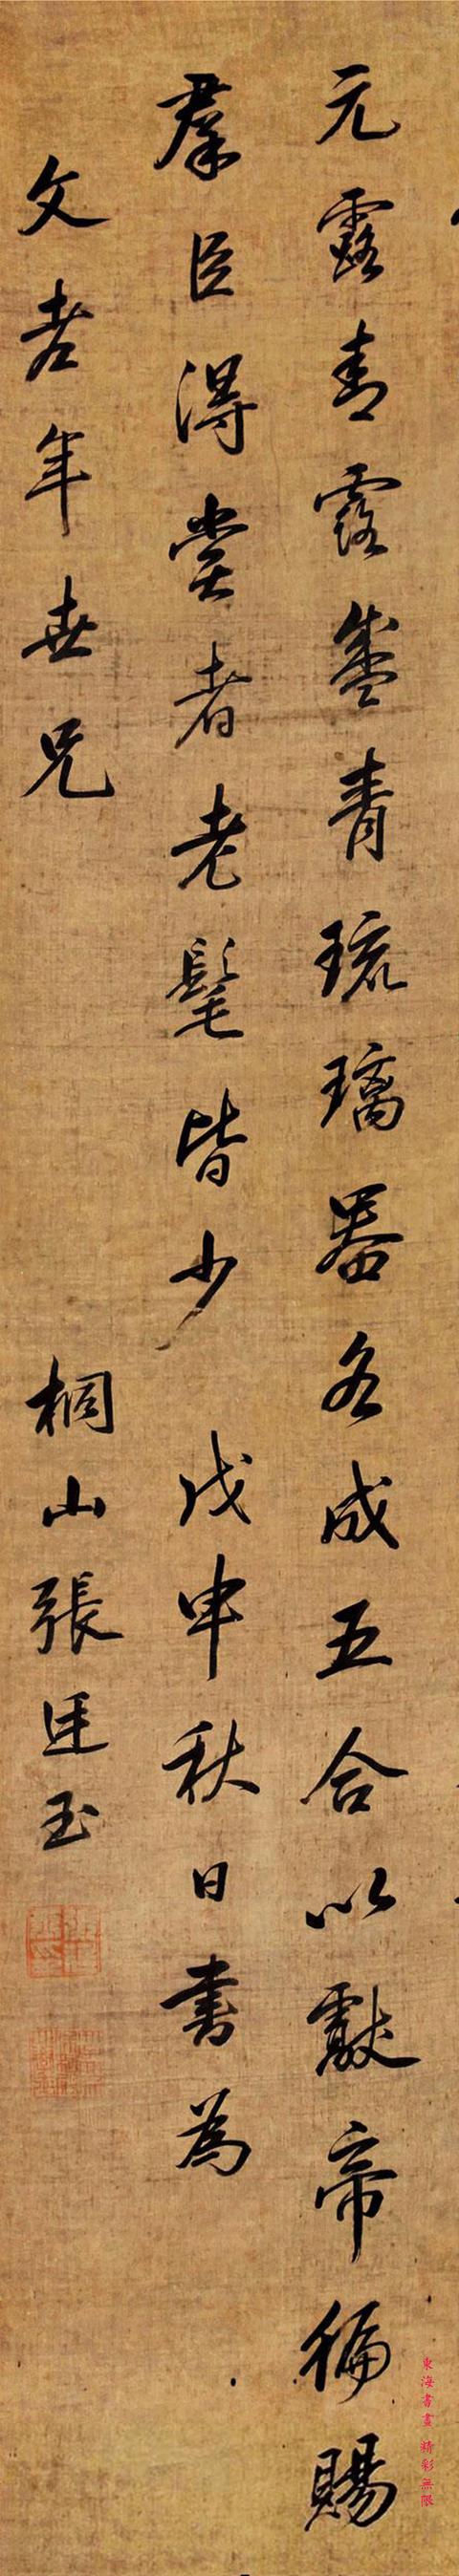 元露青露盛青琉璃器各成五合以獻帝徧賜
羣臣得嘗者老髦皆少 戊申秋日書為
文老年世兄
桐山張廷玉
東海書畫 精彩無限